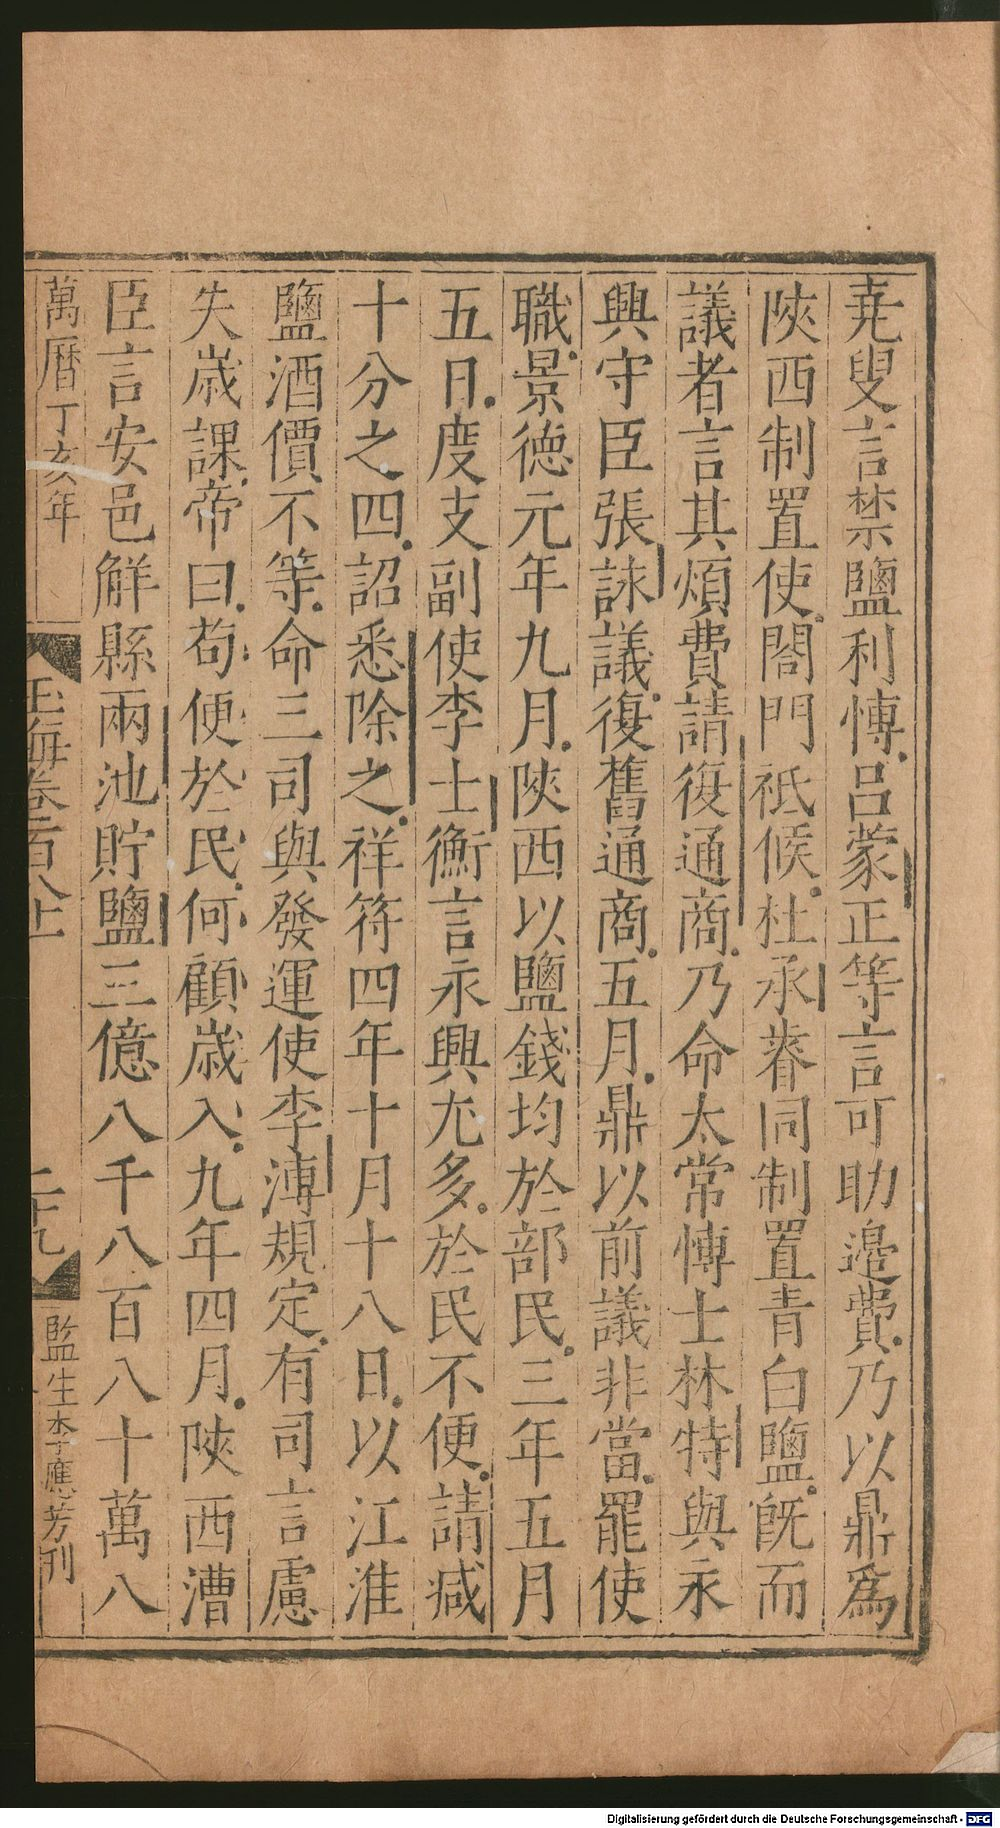 堯叟言禁鹽利愽吕蒙正等言可助邉費乃以鼎爲
陜西制置使閤門祗候杜承睠同制置青白鹽旣而
議者言其煩費請復通商乃命太常愽士林特與永
興守臣張詠議復舊通商五月鼎以前議非當罷使
職景徳元年九月陜西以鹽錢均於部民三年五月
五日度支副使李士衡言永興尤多於民不便請减
十分之四詔悉除之祥符四年十月十八日以江淮
鹽酒價不等命三司與發運使李溥規定有司言慮
失歳課帝曰苟便於民何顧歳入九年四月陜西漕
臣言安邑解縣兩池貯鹽三億八千八百八十萬八
萬曆丁亥年
玉海卷一百八上
二十九
監生李應芳刊
Digitalisierung gefördert durch die Deutsche Forschungsgemeinschaft - DFG